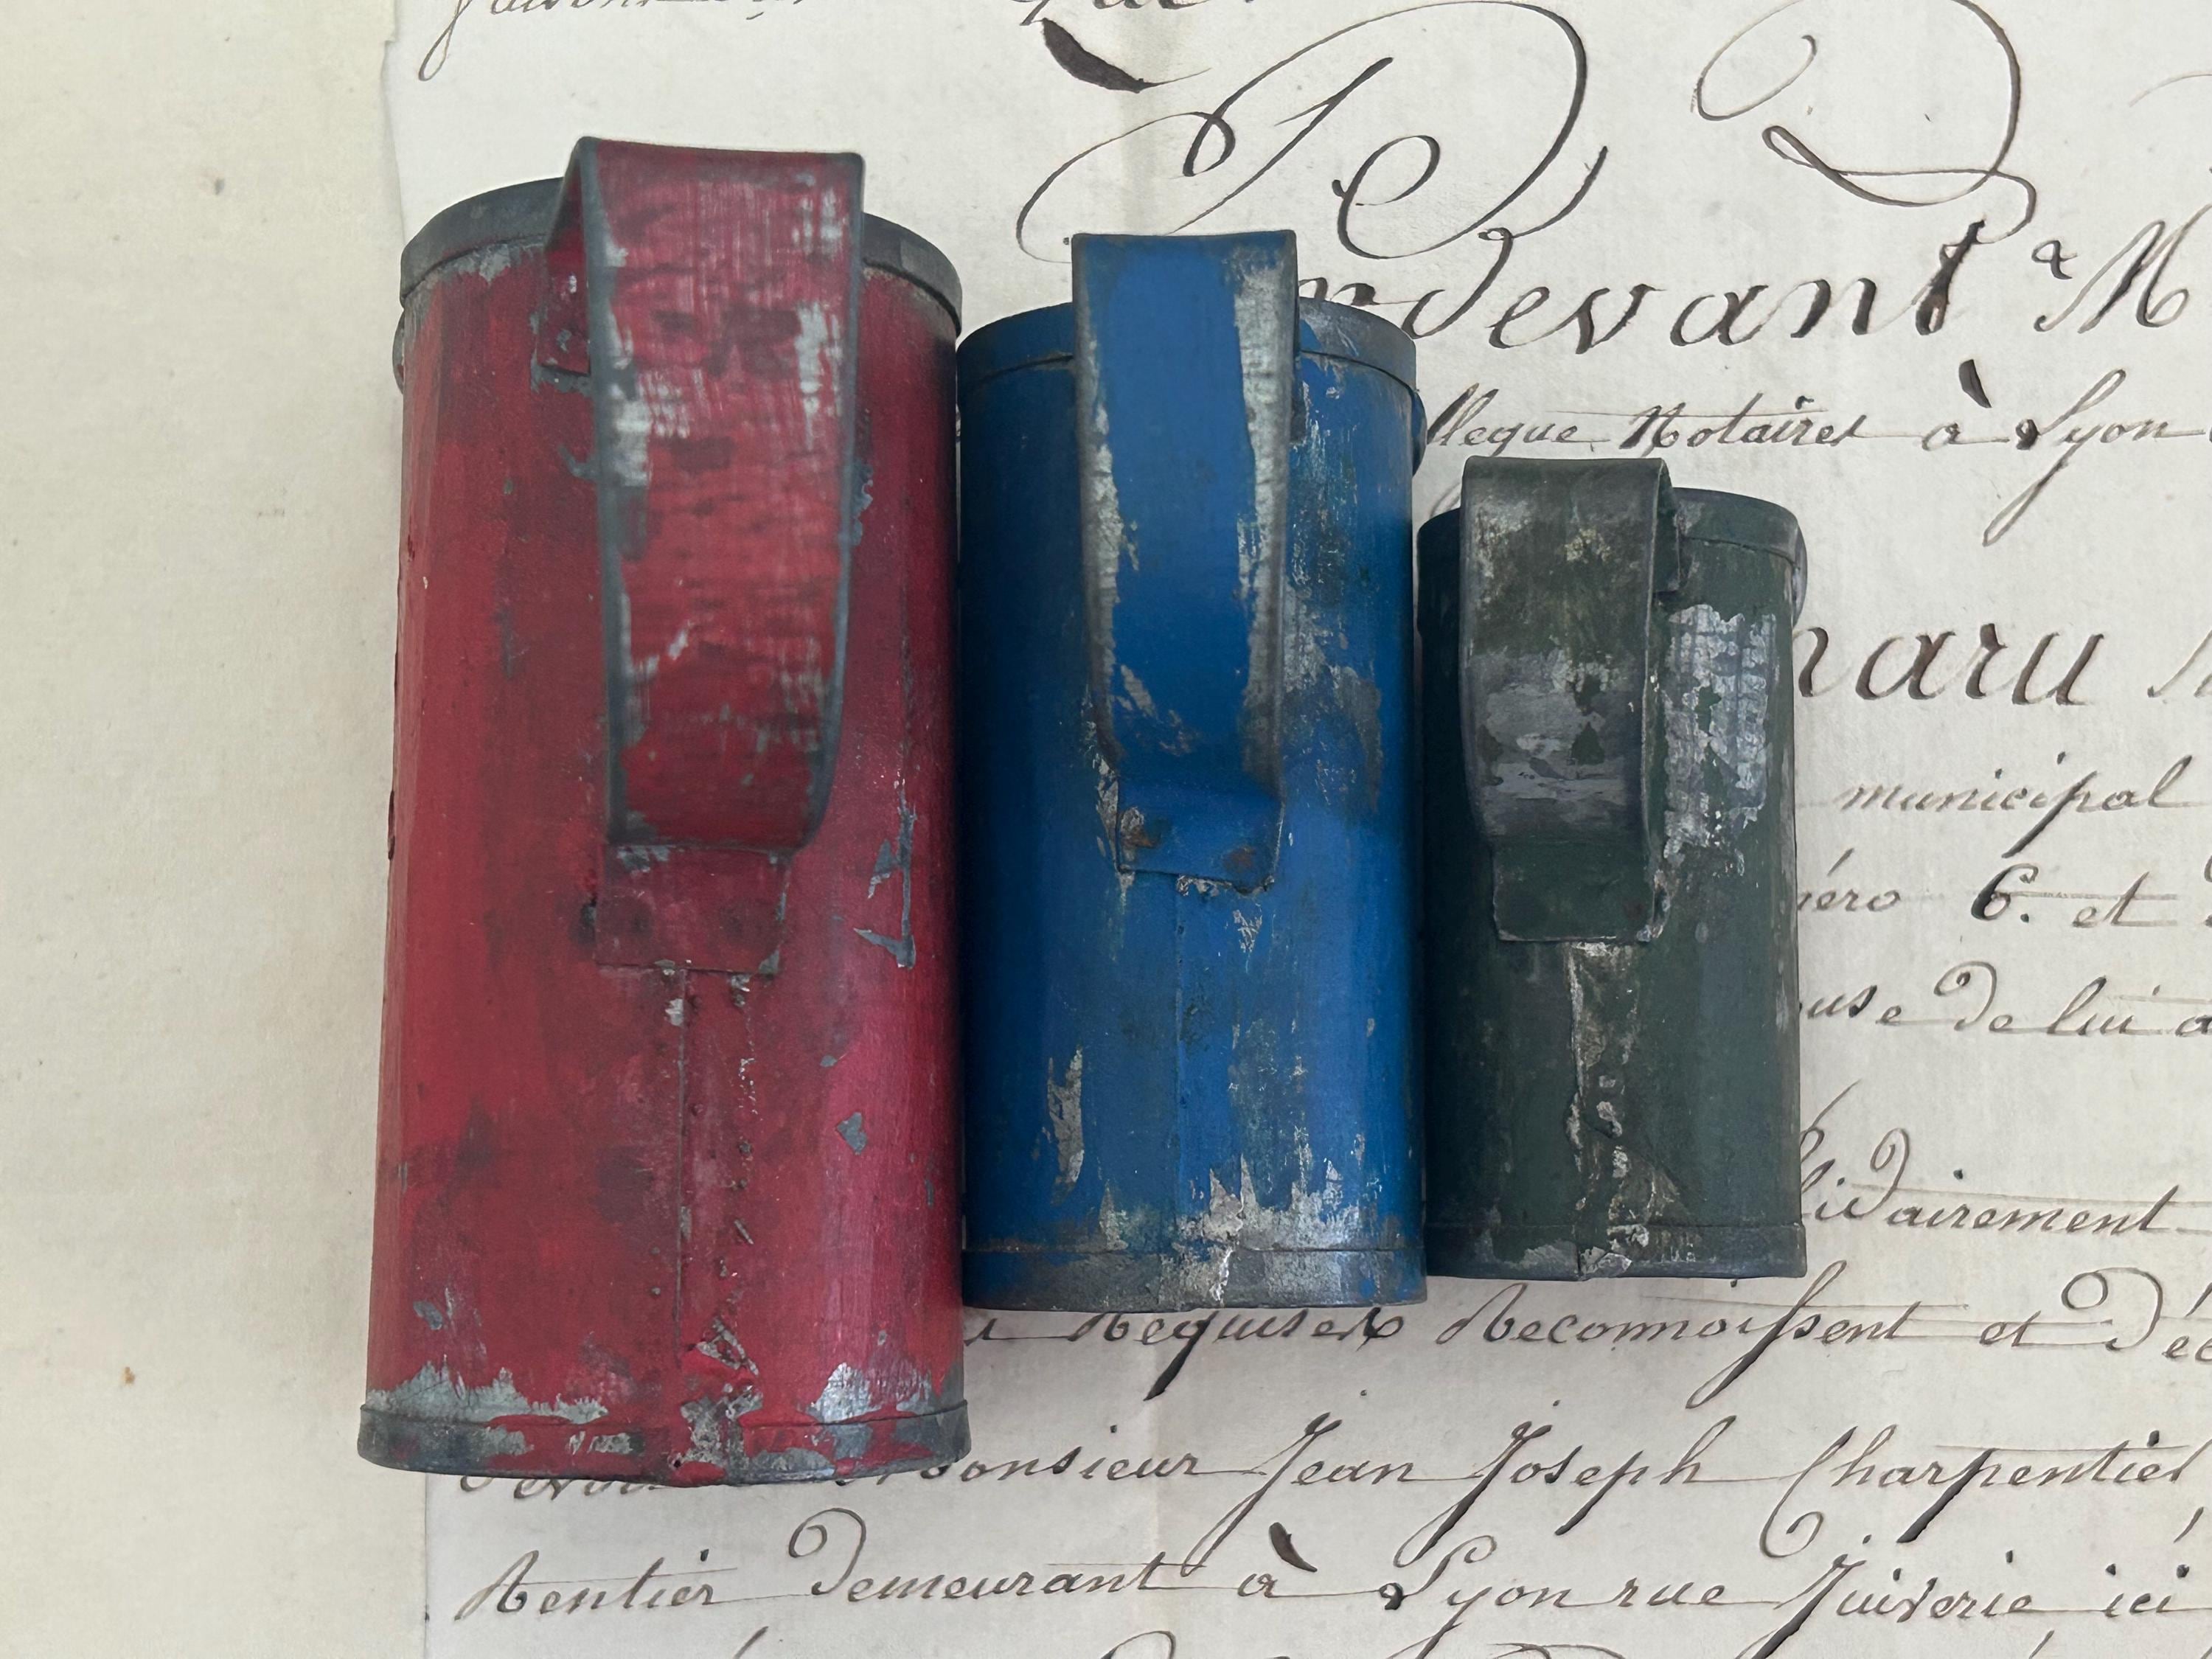 Pardevant M
llegue Notaires à Lyon
municipal
éro 6. et
use de lui
lidairement
Requises Reconnoissent et
Monsieur Jean Joseph Charpentier,
Rentier Demeurant à Lyon rue Juiverie, ici